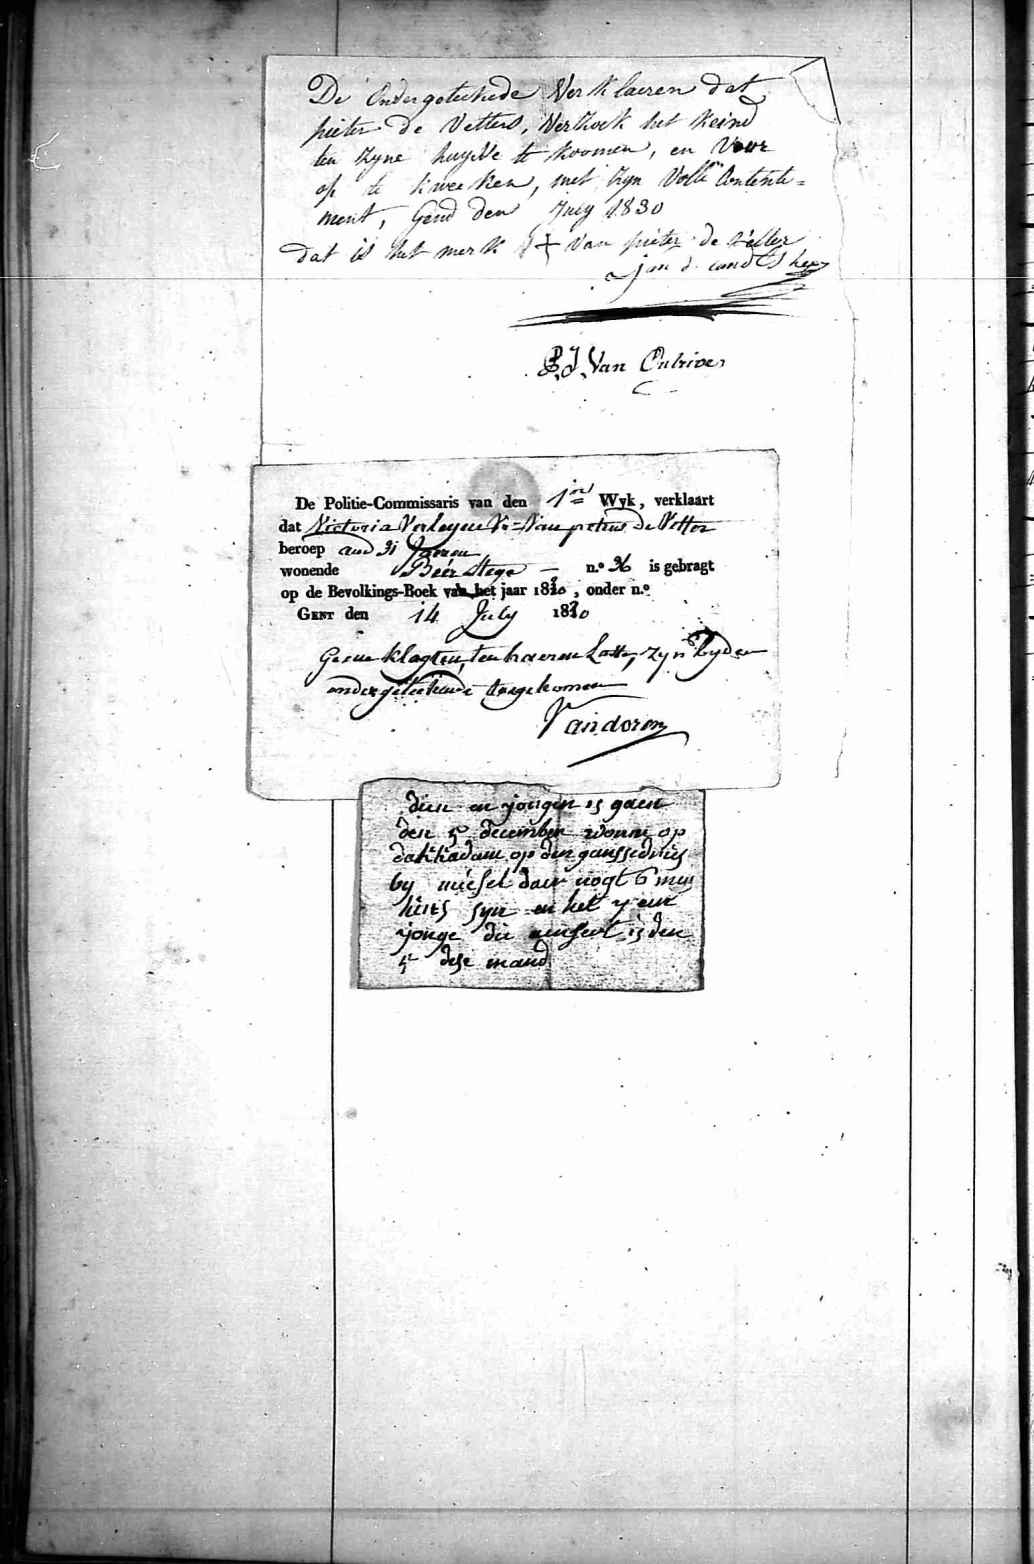 De Ondergetekede Verklaeren dat
pieter de Vetter, Verzoek het Keind
ten Zyne huyse te koomen, en Voor
op te kweeken, met Zyn Volle Contente=
ment, Gend den July 1830
dat is het merk + van pieter de Vetter
jan d
P. J. Van
De Politie-Commissaris van den 1en Wyk, verklaart
dat Victoria Verleyen Ve Van petrus De Vetter
beroep aud 31 Jaeren
wonende Beér Stege — n.o 36 is gebragt
op de Bevolkings-Boek van het jaar 1830, onder n.o
GENT den 14 July 1830
Geene klagten, ten haeren Laste, zyn by den
ondergeteekende toegekomen
Vandoren
dien en jongen is gaen
den 5 december wonen op
op den
by daer nogt 6 min
syn en het
jonge die is den
5 dese mand